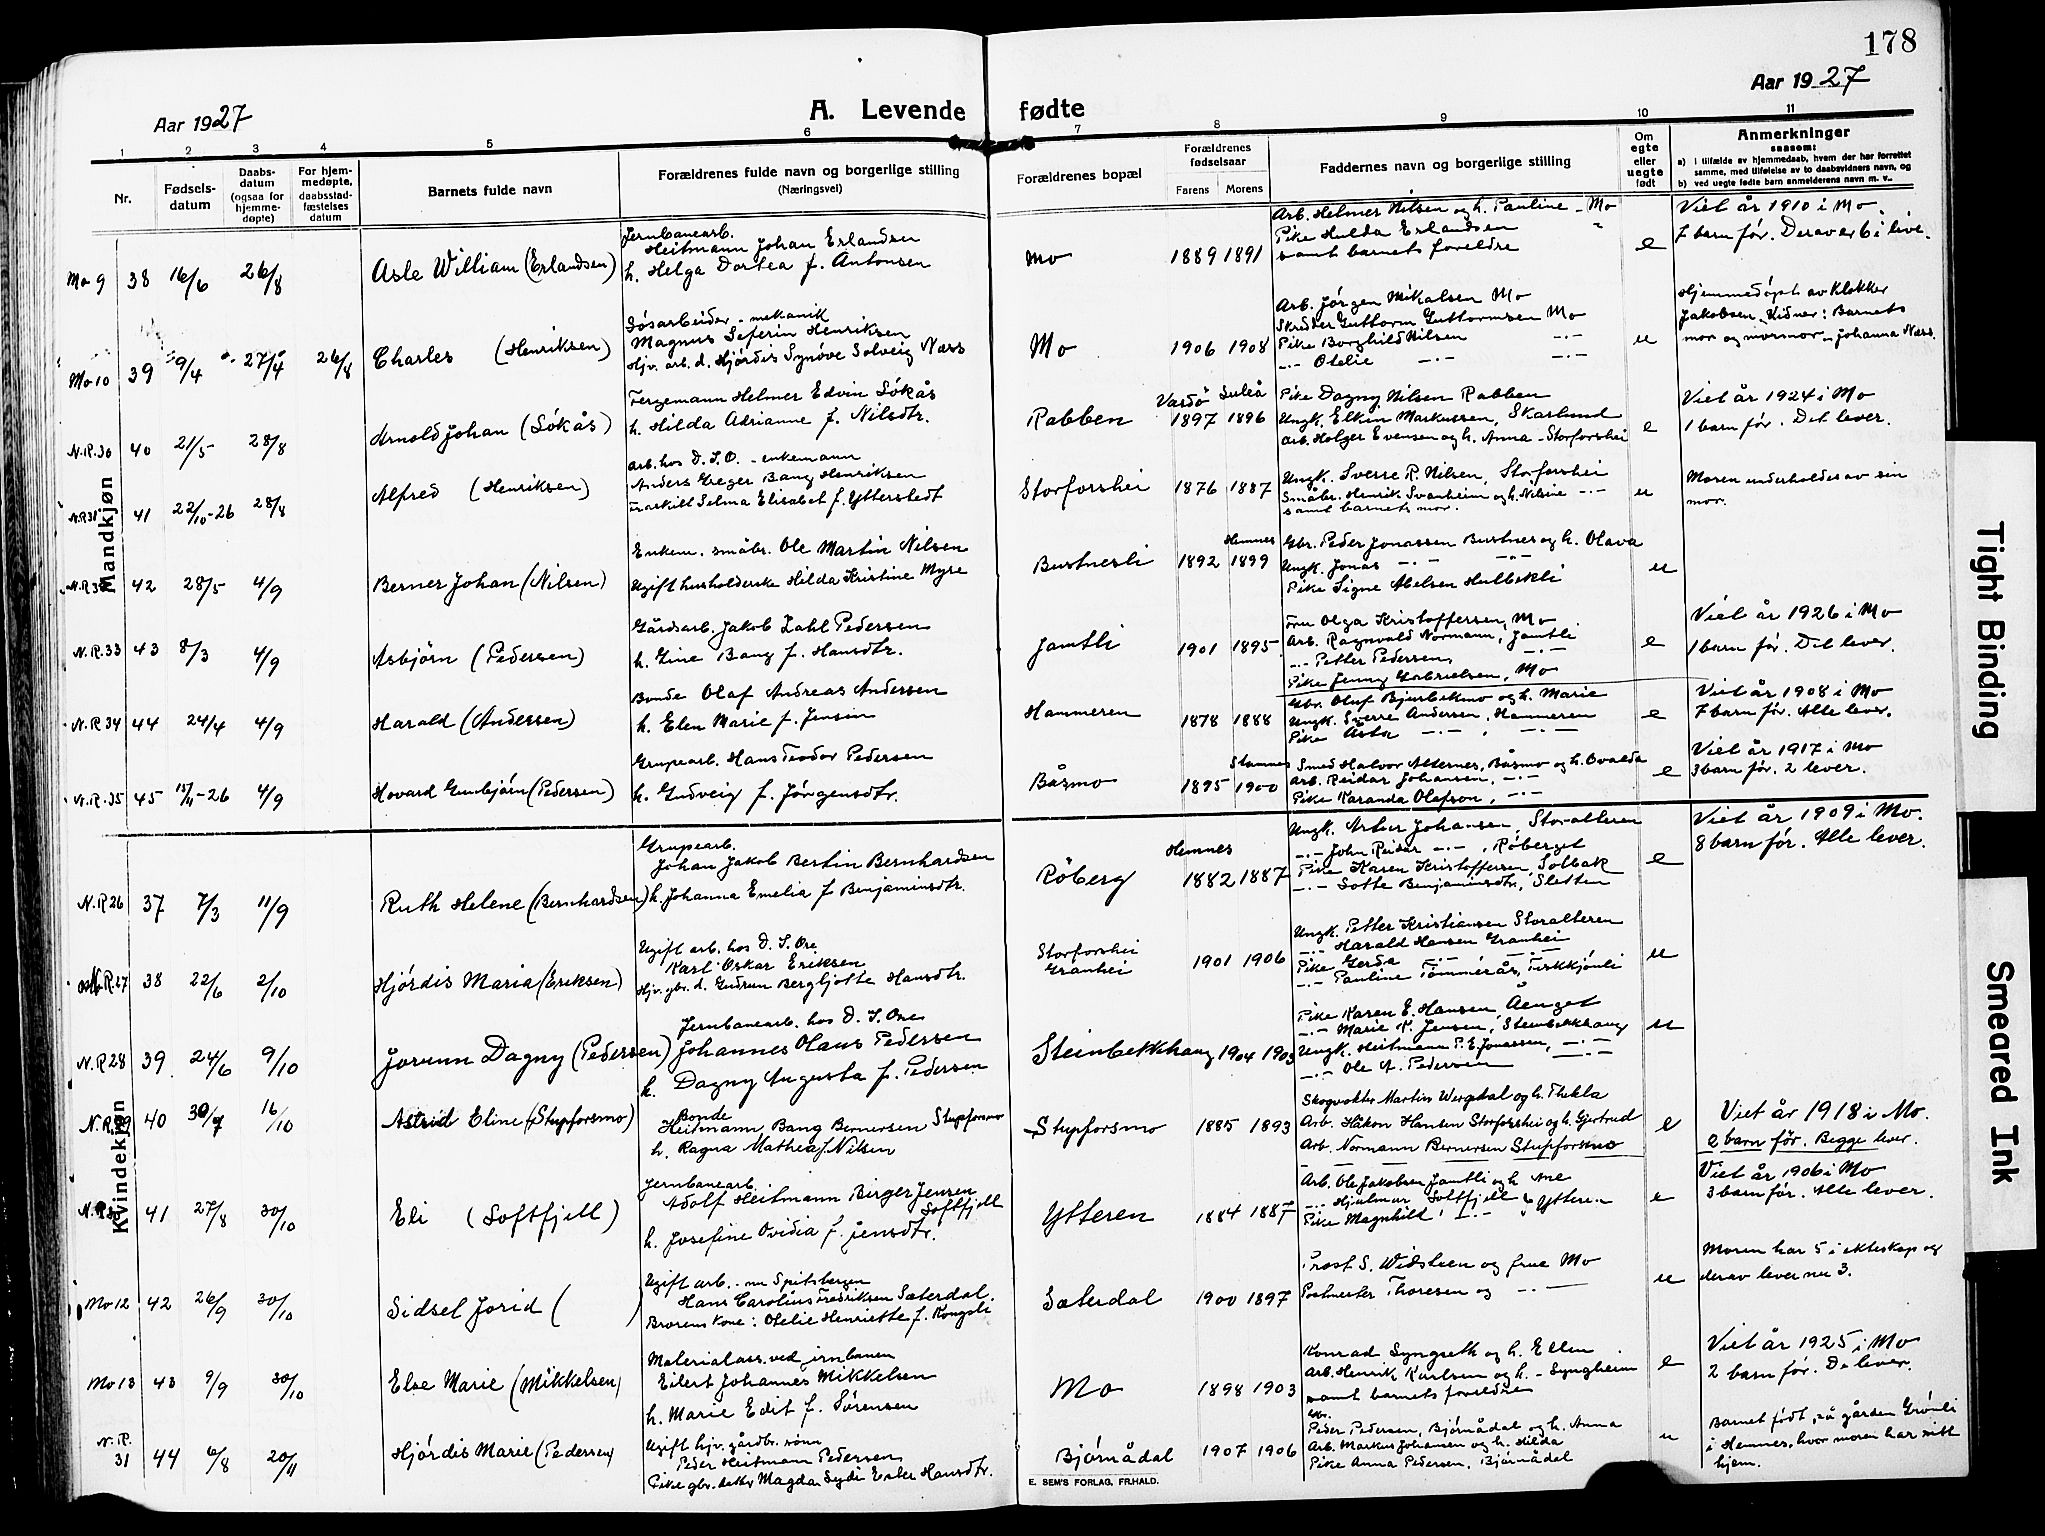 178
Aar 1927
A. Levende fødte
Aar 1927
1 2 3 4 5 6 7 8 9 10 11
Nr.
Fødsels-
datum
Daabs-
datum
(ogsaa for
hjemme-
døpte)
For hjem-
medøpte,
daabsstad-
fæstelses
datum
Barnets fulde navn
Forældrenes fulde navn og borgerlige stilling
(Næringsvei)
Forældrenes bopæl
Forældrenes
fødselsaar
Farens Morens
Faddernes navn og borgerlige stilling
Om
egte
eller
uegte
født
Anmerkninger
saasom:
a) i tilfælde av hjemmedaab, hvem der har forrettet
samme, med tilføielse av to daabsvidners navn, og
b) ved uegte fødte barn anmelderens navn m. v.
Mandkjøn
Mo 9 38 16/6 26/8 Asle William (Erlandsen)
Jernbanearb.
Heitmann Johan Erlandsen
h. Helga Dortea f. Antonsen
Mo 1889 1891
Arb. Helmer Nilsen og h. Pauline - Mo
Pike Hulda Erlandsen "
samt barnets foreldre
e
Viet år 1910 i Mo
7 barn før. Derav er 6 i live.
Mo 10 39 9/4 27/4 26/8 Charles (Henriksen)
Løsarbeider - mekanik
Magnus Seferin Henriksen
Hjv. arb. d. Hjørdis Synøve Solveig Næss
Mo 1906 1908
Arb. Jørgen Mikalsen Mo
Skræder Guttorm Guttormsen Mo
Pike Borghild Nilsen -.-
-.- Otelie -.- -.-
u
Hjemmedøpt av Klokker
Jakobsen. Vidner: Barnets
mor og mormor - Johanna Næss.
N.R.30 40 21/5 28/8 Arnold Johan (Søkås)
Fergemann Helmer Edvin Søkås
h. Hilda Adrianne f. Nilsdtr.
Rabben Vardø 1897 Luleå 1896
Pike Dagny Nilsen Rabben
Ungk. Elkin Markussen, Skarlund
arb. Holger Evensen og h. Anna - Storforshei
e
Viet år 1924 i Mo
1 barn før. Det lever.
N.R.31 41 22/10-26 28/8 Alfred (Henriksen)
Arb. hos D.S.O. - enkemann
Anders Greger Bang Henriksen
Fraskilt Selma Elisabet f. Ytterstedt
Storforshei 1876 1887
Ungk. Sverre R. Nilsen, Storforshei
Småbr. Henrik Svanheim og h. Nilsine -.-
samt barnets mor.
u
Moren underholdes av sin
mor.
N.R.3 42 28/5 4/9 Berner Johan (Nilsen)
Enkem. småbr. Ole Martin Nilsen
Ugift husholderske Hilda Kristine Myre
Bustnesli 1892 Hemnes 1899
Gbr. Peder Jonassen Bustnes og h. Olava
Ungk. Jonas -.- -.-
Pike Signe Abelsen Hulbekli
u
N.R.33 43 8/3 4/9 Asbjørn (Pedersen)
Gårdsarb. Jakob Zahl Pedersen
h. Gine Bang f. Hansdtr.
Jamtli 1901 1895
Fru Olga Kristoffersen, Mo
Arb. Ragnvald Normann, Jamtli
-.- Petter Pedersen, -.-
Pike Jenny Gabrielsen, Mo
e
Viet år 1926 i Mo
1 barn før. Det lever.
N.R.34 44 24/4 4/9 Harald (Andersen)
Bonde Olaf Andreas Andersen
h. Elen Marie f. Jensen
Hammeren 1878 1888
Gbr. Oluf Bjurbekmo og h. Marie
Ungk. Sverre Andersen, Hammeren
Pike Asta -.- , -.-
e
Viet år 1908 i Mo
7 barn før. Alle lever.
N.R.35 45 15/11-26 4/9 Hovard Gunbjørn (Pedersen)
Grupearb. Hans Teodor Pedersen
h. Gudveig f. Jørgensdtr.
Båsmo 1895 Stamnes 1900
Smed Halvor Alternes, Båsmo og h. Ovalda
Arb. Reidar Johansen, -.-
Pike Karanda Olafson, -.-
e
Viet år 1917 i Mo
3 barn før. 2 lever.
Kvindekjøn
N.R 26 37 7/3 11/9 Ruth Helene (Bernhardsen)
Grupearb.
Johan Jakob Bertin Bernhardsen
h. Johanna Emelia f Benjaminsdtr.
Røberg Hemnes 1882 1887
Ungk. Artur Johansen, Storalteren
-.- John Reidar -.- , Røberget
Pike Karen Kristoffersen, Solbak
-.- Lotte Benjaminsdtr, Sletten
e
Viet år 1909 i Mo.
8 barn før. Alle lever.
N.R.27 38 22/6 2/10 Hjørdis Maria (Eriksen)
Ugift arb. hos D.S. Ore
Karl Oskar Eriksen
Hjv. gbr. d. Gudrun Bergljotte Hansdtr.
Storforshei
Granhei 1901 1906
Ungk. Petter Kristiansen Storalteren
-.- Harald Hansen Granhei
Pike Gerda -.- -.-
-.- Pauline Tømmerås, Fiskkjønli
u
N.R 28 39 24/6 9/10 Jorunn Dagny (Pedersen)
Jernbanearb. hos D.S. Ore
Johannes Olaus Pedersen
h. Dagny Augusta f. Pedersen
Steinbekkhaug 1904 1903
Pike Karen E. Hansen Åenget
-.- Marie K. Jensen, Steinbekkhaug
Ungk. Heitmann P.E. Jonassen, -.-
-.- Ole A. Pedersen -.-
u
N.R.29 40 30/7 16/10 Astrid Eline (Stupforsmo)
Bonde
Heitmann Bang Bernersen Stupforsmo
h. Ragna Mathea f. Nilsen
Stupforsmo 1885 1893
Skogvokter Martin Wergdal og h. Thekla
Arb. Håkon Hansen Storforshei og h. Gjertrud
Arb. Normann Bernersen Stupforsmo
e
Viet år 1918 i Mo.
2 barn før. Begge lever.
N.R 3 41 27/8 30/10 Eli (Softfjell)
Jernbanearb.
Adolf Heitmann Birger Jensen
Softfjell
h. Josefine Ovidia f. Jensdtr.
Ytteren 1884 1887
Arb. Ole Jakobsen Jamtli og h Ane
-.- Hjalmar Softfjell, Ytteren
Pike Magnhild -.- , -.-
e
Viet år 1906 i Mo
3 barn før. Alle lever.
Mo 12 42 26/9 30/10 Sidsel Jorid ( )
Ugift arb. - nu Spitsbergen
Hans Carolius Fredriksen Sæterdal.
Brorens kone: Otelie Henriette f. Kongsli
Sæterdal 1900 1897
Prost S. Widsteen og frue Mo
Postmester Thoresen og -.-
u
Moren har 5 i ekteskap og
derav lever nu 3.
Mo 13 43 9/9 30/10 Else Marie (Mikkelsen)
Materialass. ved jernbanen
Eilert Johannes Mikkelsen
h. Marie Edit f. Sørensen
Mo 1898 1903
Konrad Syngseth og h. Ellen
Arb. Henrik Karlsen og h. - Syngheim
samt barnets foreldre
e
Viet år 1925 i Mo
2 barn før. De lever.
N.R.
31 44 6/8 20/11 Hjørdis Marie (Pedersen)
Ugift hjv. gårdbr. sønn
Peder Heitmann Pedersen
Pike gbr. datter Magda Sydi Ester Hansdtr.
Bjørnådal 1907 1906
Gbr.
Peder Pedersen, Bjørnådal og h. Anna
Arb. Markus Johansen og h. Hilda
Pike Anna Pedersen, Bjørnådal
u
Barnet født på gården Grønli
i Hemnes, hvor moren har sitt
hjem.
E. SEM'S FORLAG, FR.HALD.
Tight Binding
Smeared Ink